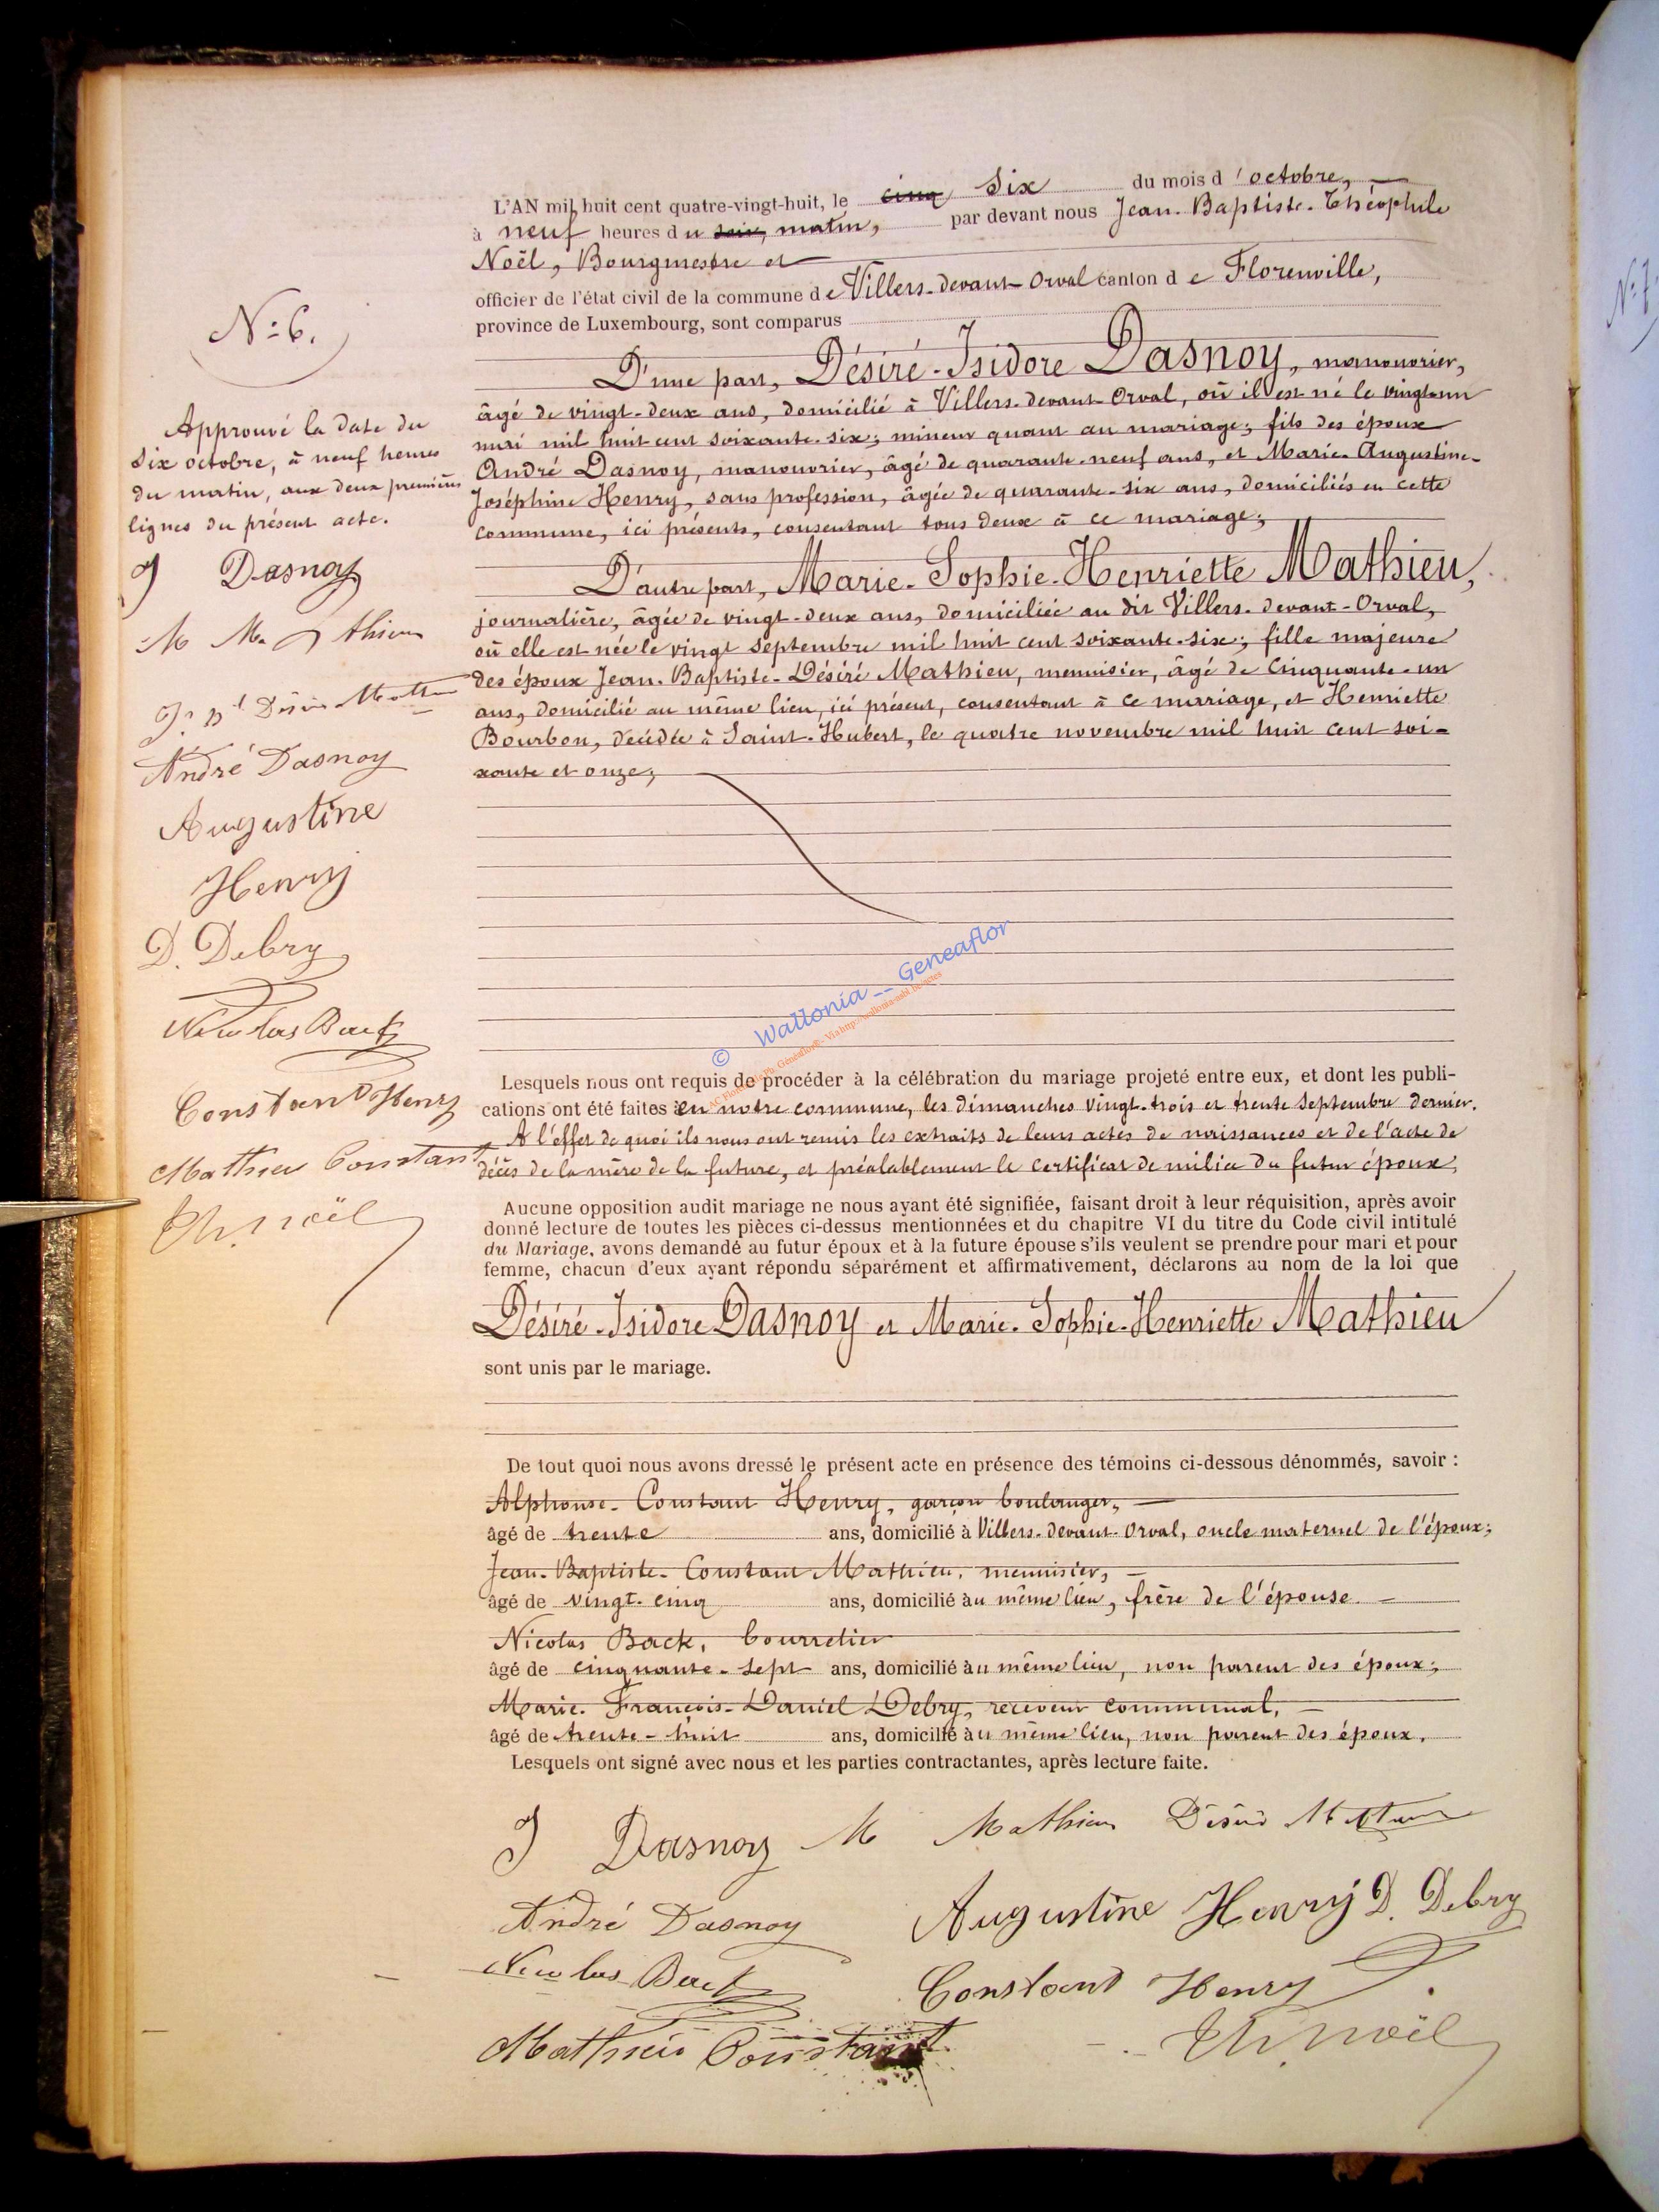 N° 6.
Approuvé la date du
six octobre, à neuf heures
du matin, aux deux premières
lignes du présent acte.
J Dasnoy
M Mathieu
J. Bte Désiré Mathieu
André Dasnoy
Augustine
Henry
D. Debry
Nicolas Back
Constant Henry
Mathieu Constant
Th. Noël
L'AN mil huit cent quatre-vingt-huit, le cinq six du mois d'octobre,
à neuf heures du soir, matin, par devant nous Jean-Baptiste-Théophile
Noël, Bourgmestre et
officier de l'état civil de la commune de Villers-devant-Orval canton de Florenville,
province de Luxembourg, sont comparus
D'une part, Désiré-Isidore Dasnoy, manouvrier,
âgé de vingt-deux ans, domicilié à Villers-devant-Orval, où il est né le vingt-un
mai mil huit cent soixante-six; mineur quant au mariage; fils des époux
André Dasnoy, manouvrier, âgé de quarante-neuf ans, et Marie-Augustine-
Joséphine Henry, sans profession, âgée de quarante-six ans, domiciliés en cette
commune, ici présents, consentant tous deux à ce mariage;
D'autre part, Marie-Sophie-Henriette Mathieu,
journalière, âgée de vingt-deux ans, domiciliée au dit Villers-devant-Orval,
où elle est née le vingt septembre mil huit cent soixante-six; fille majeure
des époux Jean-Baptiste-Désiré Mathieu, menuisier, âgé de cinquante-un
ans, domicilié au même lieu, ici présent, consentant à ce mariage, et Henriette
Bourbon, décédée à Saint-Hubert, le quatre novembre mil huit cent soi-
xante et onze;
© Wallonia __ Geneaflor
Lesquels nous ont requis de procéder à la célébration du mariage projeté entre eux, et dont les publi-
cations ont été faites en notre commune, les dimanches vingt-trois et trente septembre dernier.
A l'effet de quoi ils nous ont remis les extraits de leurs actes de naissances et de l'acte de
décès de la mère de la future, et préalablement le certificat de milice du futur époux.
Aucune opposition audit mariage ne nous ayant été signifiée, faisant droit à leur réquisition, après avoir
donné lecture de toutes les pièces ci-dessus mentionnées et du chapitre VI du titre du Code civil intitulé
du Mariage, avons demandé au futur époux et à la future épouse s'ils veulent se prendre pour mari et pour
femme, chacun d'eux ayant répondu séparément et affirmativement, déclarons au nom de la loi que
Désiré-Isidore Dasnoy et Marie-Sophie-Henriette Mathieu
sont unis par le mariage.
De tout quoi nous avons dressé le présent acte en présence des témoins ci-dessous dénommés, savoir :
Alphonse-Constant Henry, garçon boulanger,
âgé de trente ans, domicilié à Villers-devant-Orval, oncle maternel de l'époux;
Jean-Baptiste-Constant Mathieu, menuisier,
âgé de vingt-cinq ans, domicilié au même lieu, frère de l'épouse
Nicolas Back, bourrelier
âgé de cinquante-sept ans, domicilié au même lieu, non parent des époux;
Marie-François-Daniel Debry, receveur communal,
âgé de trente-huit ans, domicilié au même lieu, non parent des époux.
Lesquels ont signé avec nous et les parties contractantes, après lecture faite.
J Dasnoy M Mathieu Désiré Mathieu
André Dasnoy Augustine Henry D. Debry
Nicolas Back Constant Henry
Mathieu Constant Th. Noël